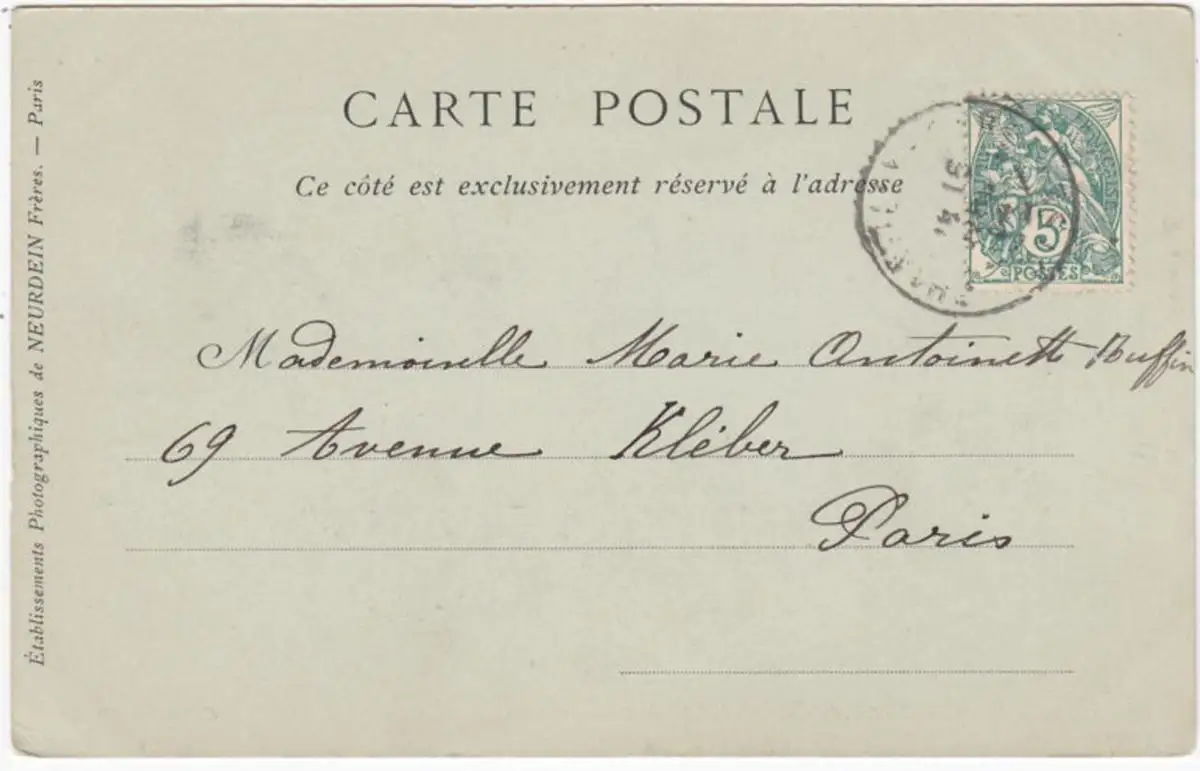 CARTE POSTALE
Ce côté est exclusivement réservé à l'adresse
5c
POSTES
Mademoiselle Marie Antoinett Buffin
69 Avenue Kléber
Paris
Établissements Photographiques de NEURDEIN Frères. — Paris